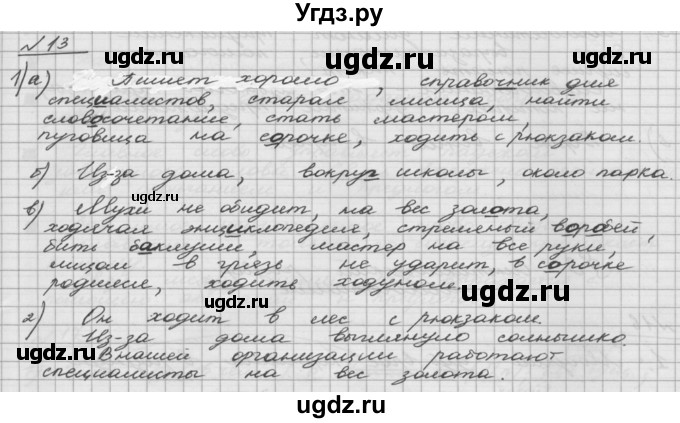 Угдз.ру
№ 13
1)а) Пишет хорошо, справочник для
специалистов, старая лисица, найти
словосочетание, стать мастером,
пуговица на сорочке, ходить с рюкзаком.
б) Из-за дома, вокруг школы, около парка.
в) Мухи не обидит, на вес золота,
ходячая энциклопедия, стреляный воробей,
бить баклуши, мастер на все руки,
лицом в грязь не ударит, в сорочке
родился, ходить ходуном.
г) Он ходит в лес с рюкзаком.
Из-за дома выглянуло солнышко.
В нашей организации работают
специалисты на вес золота.
ugdz.ru
ugdz.ru
ugdz.ru
ugdz.ru
ugdz.ru
ugdz.ru
ugdz.ru
ugdz.ru
ugdz.ru
ugdz.ru
Угдз.ру